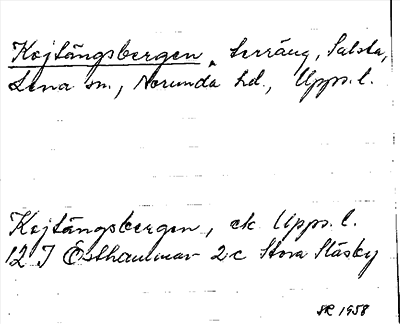 Kojtängsbergen, terräng, Salsta,
Lena sn., Norunda hd., Upps. l.
Kojtängsbergen, ek Upps. l.
12 I Östhammar 2c Stora Väsby
SR 1958